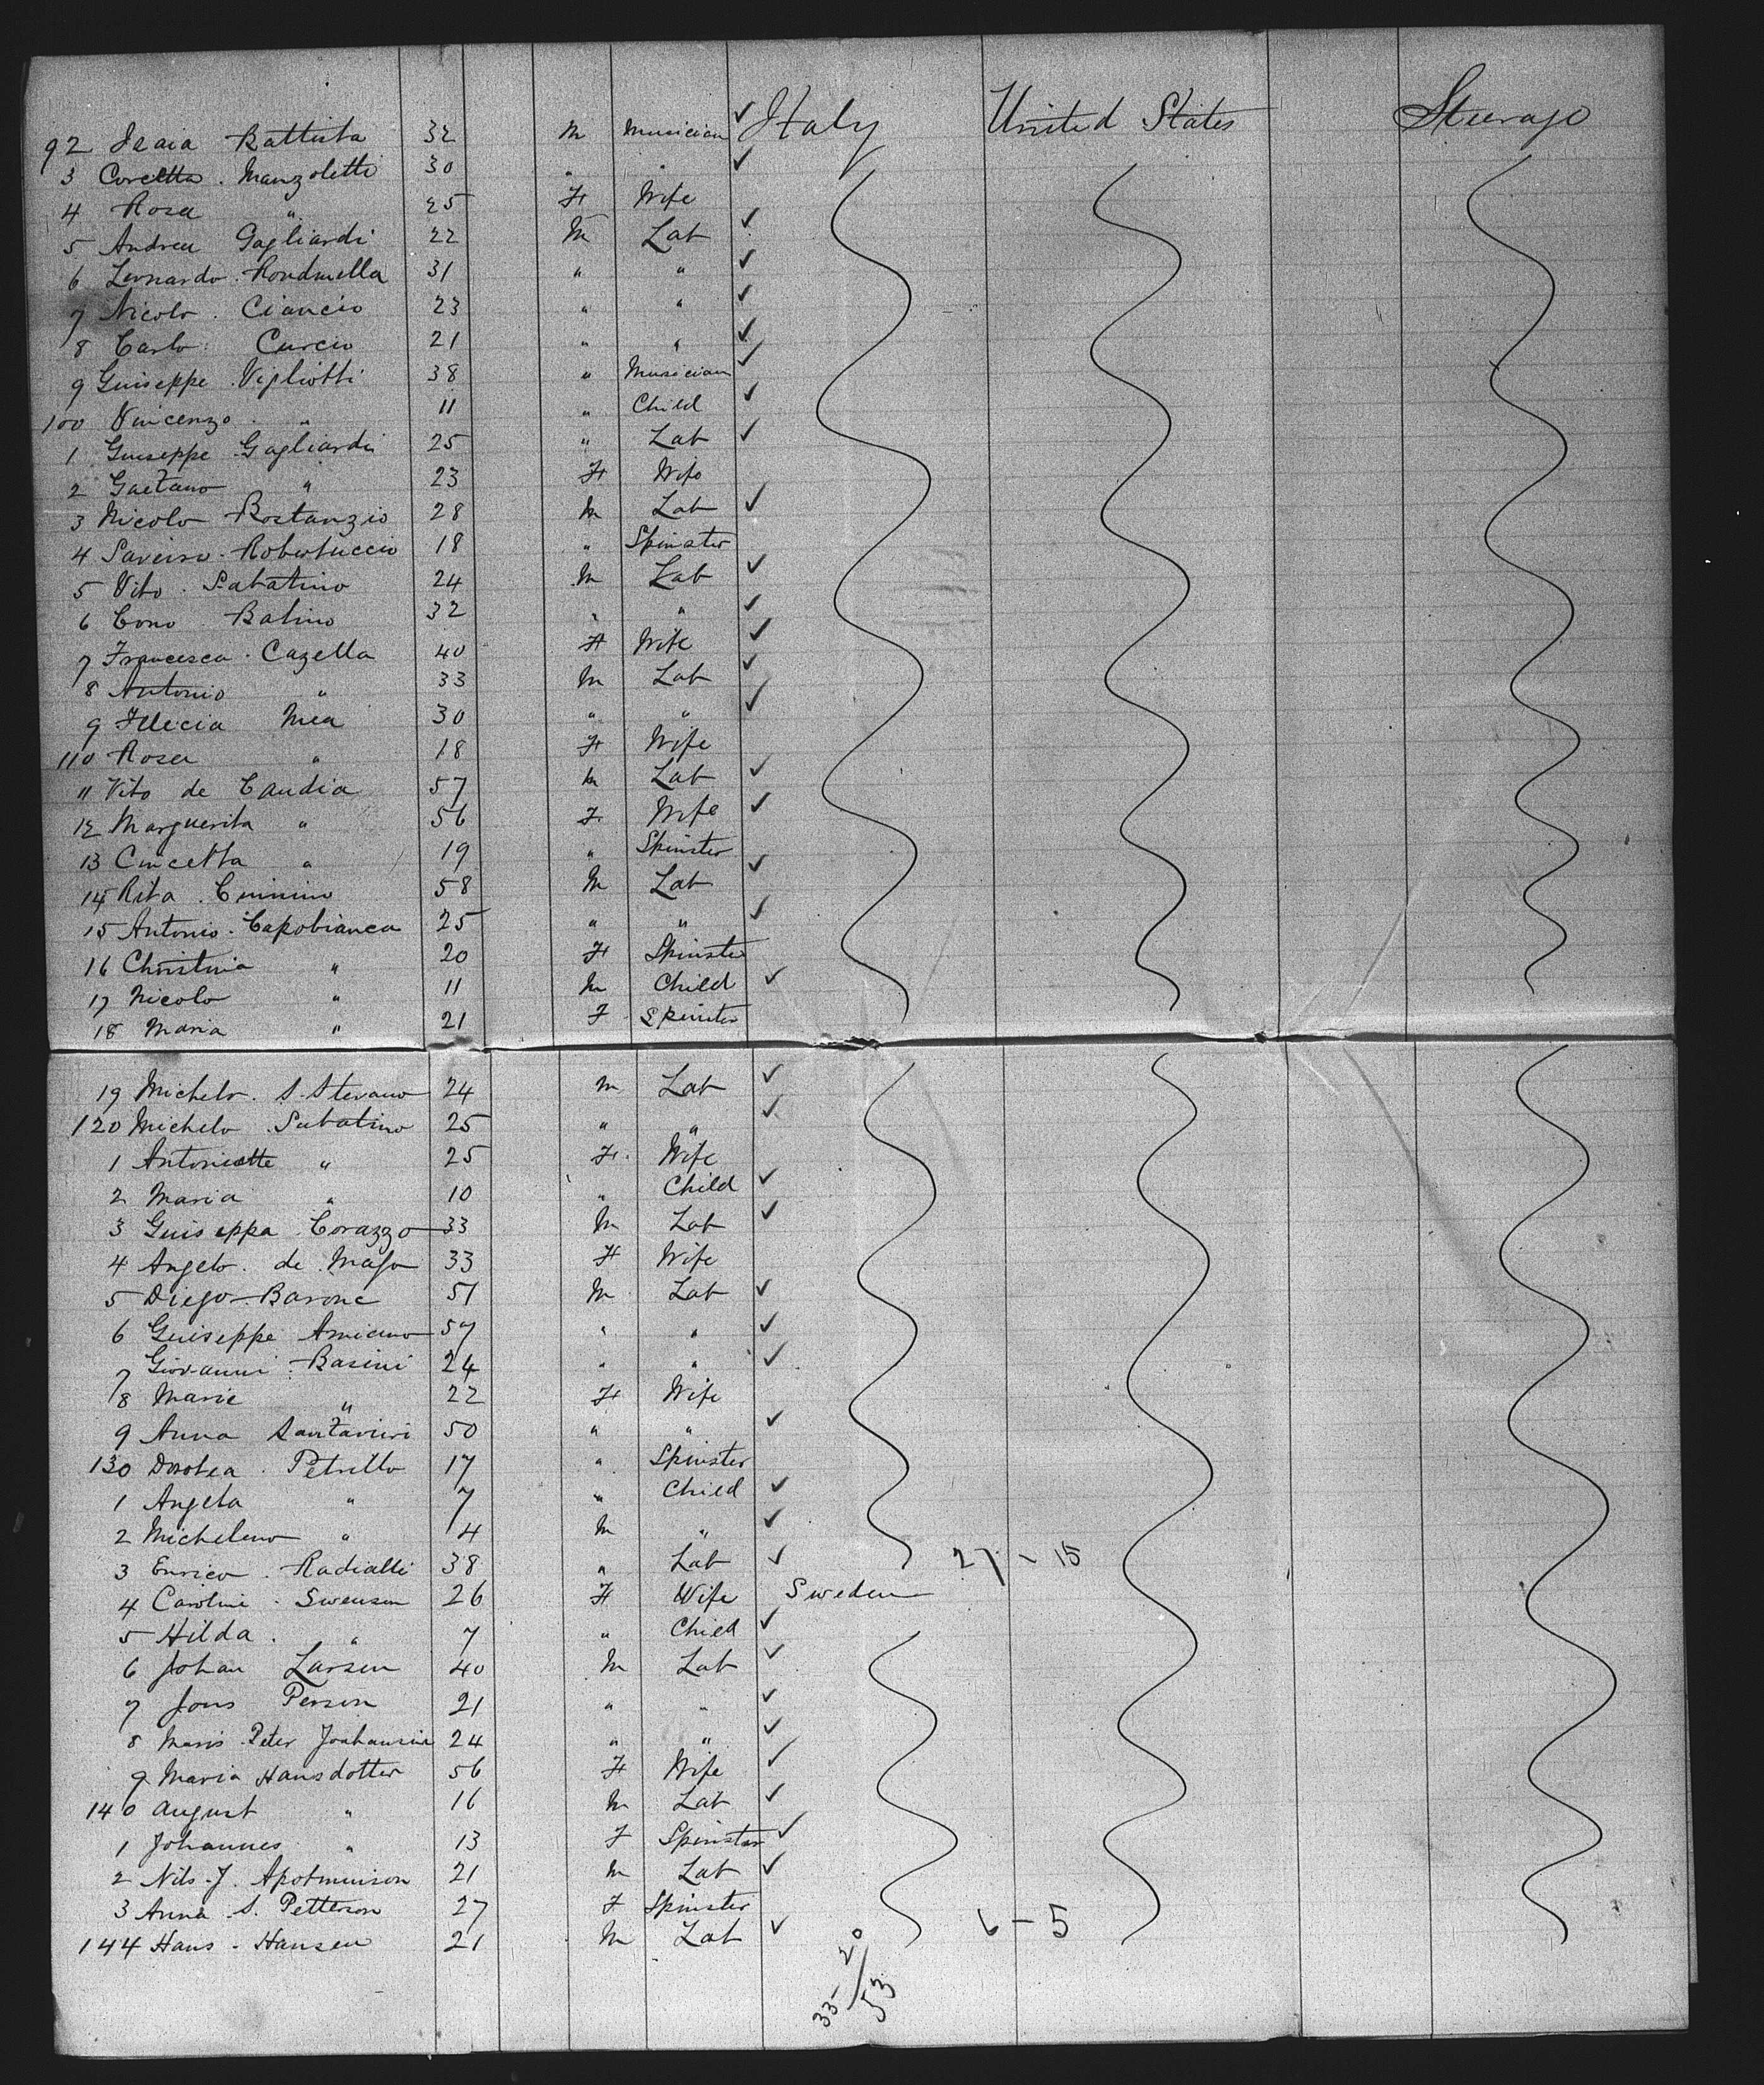 92 Isaia Battista 32 M Musician ✓ Italy United States Steerage
3 Concetta . Manzoletti 30 " " ✓
4 Rosa " 25 F Wife
5 Andrea Gagliardi 22 M Lab ✓
6 Leonardo . Rondinella 31 " " ✓
7 Nicolo . Ciancio 23 " " ✓
8 Carlo . Curcio 21 " " ✓
9 Guiseppe . Vigliotti 38 " Musician ✓
100 Vincenzo . " 11 " Child ✓
1 Guiseppe Gagliardi 25 " Lab ✓
2 Gaetano " 23 F Wife
3 Nicolo Bostanzio 28 M Lab ✓
4 Saveiro . Robertuccio 18 " Spinster
5 Vito . Sabatino 24 M Lab ✓
6 Cono . Balino 32 " " ✓
7 Francesca . Cazella 40 F Wife ✓
8 Antonio " 33 M Lab ✓
9 Mea 30 " " ✓
110 Rosa " 18 F Wife
11 Vito de Candia 57 M Lab ✓
12 Marguerita " 56 F Wife ✓
13 Concetta " 19 " Spinster
14 Rita . 58 M Lab ✓
15 Antonio . Capobianca 25 " " ✓
16 Christina " 20 F Spinster
17 Nicolo " 11 M Child ✓
18 Maria " 21 F Spinster
19 Michelo . S. Stevano 24 M Lab ✓
120 Michelo . Sabatino 25 " " ✓
1 Antoniette " 25 F. Wife
2 Maria " 10 " Child ✓
3 Guiseppa Corazzo 33 M Lab ✓
4 Angelo . de Maso 33 F Wife
5 Diego - Barone 51 M Lab ✓
6 Guiseppe Amiano 57 " " ✓
7 Giovanni . Basini 24 " " ✓
8 Marie " 22 F Wife
9 Anna 50 " " ✓
130 Dorotea . Petrillo 17 " Spinster
1 Angela " 7 " Child ✓
2 Michelino " 4 M " ✓
3 Enrico . Radialli 38 " Lab ✓ 27 - 15
4 Caroline . Swensen 26 F Wife Sweden
5 Hilda . " 7 " Child ✓
6 Johan Larsen 40 M Lab ✓
7 Jons Person 21 " " ✓
8 Peter 24 " " ✓
9 Maria Hansdotter 56 F Wife ✓
140 August " 16 M Lab ✓
1 Johannes " 13 F Spinster ✓
2 Nils . J. 21 M Lab ✓
3 Anna . S. Petterson 27 F Spinster
144 Hans - Hansen 21 M Lab ✓ 6 - 5
33 - 20 / 53